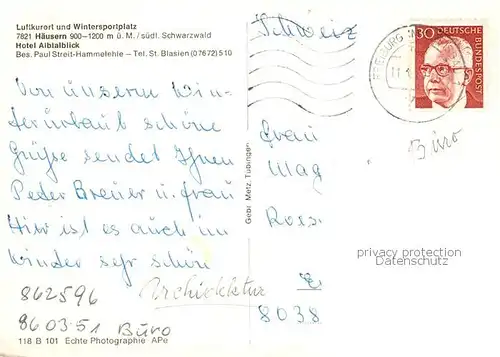 Luftkurort und Wintersportplatz
7821 Häusern 900-1200 m ü. M. / südl. Schwarzwald
Hotel Albtalblick
Bes. Paul Streit-Hammelehle – Tel. St. Blasien (07672) 510
Schweiz
FREIBURG IM
80 DEUTSCHE BUNDESPOST
Büro
Von unserm Win-
terurlaub schöne
Grüße sendet Ihnen
Peter Breuer u. Frau
Hier ist es auch im
Winter sehr schön
Gebr. Metz, Tübingen
Frau
Mag
Ross
8038
privacy protection
Datenschutz
862596 Architektur
860351 Büro
118 B 101 Echte Photographie APe